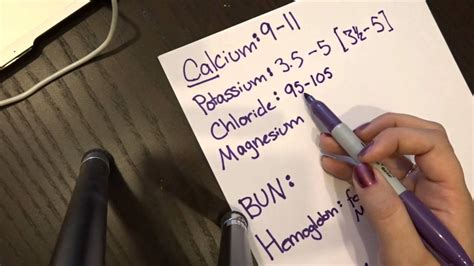 Calcium: 9-11
Potassium: 3.5-5 [3½-5]
Chloride: 95-105
Magnesium
BUN:
Hemoglobin: